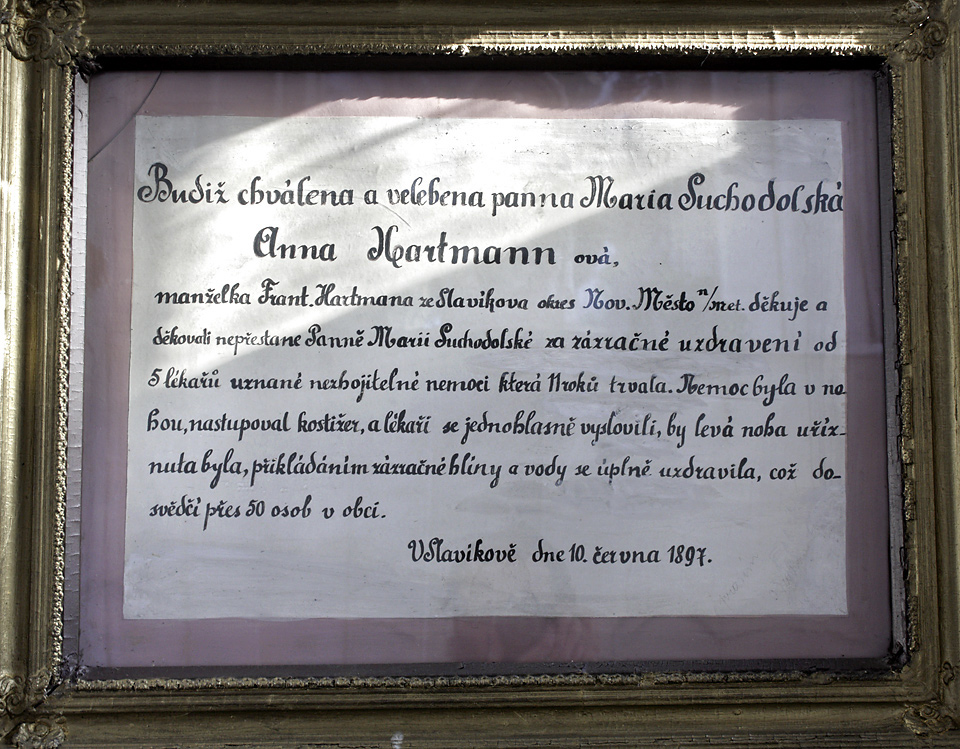 Budiž chválena a velebena panna Maria Suchodolská
Anna Hartmann ová,
manželka Frant. Hartmana ze Slavíkova okres Nov. Město n/Met. děkuje a
děkovati nepřestane Panně Marii Suchodolské za zázračné uzdravení od
5 lékařů uznané nezhojitelné nemoci která 11 roků trvala. Nemoc byla v no
hou, nastupoval kostižer, a lékaři se jednohlasně vyslovili, by levá noha uříz-
nuta byla, přikládáním zázračné hlíny a vody se úplně uzdravila, což do-
svědčí přes 50 osob v obci.
V Slavíkově dne 10. června 1897.